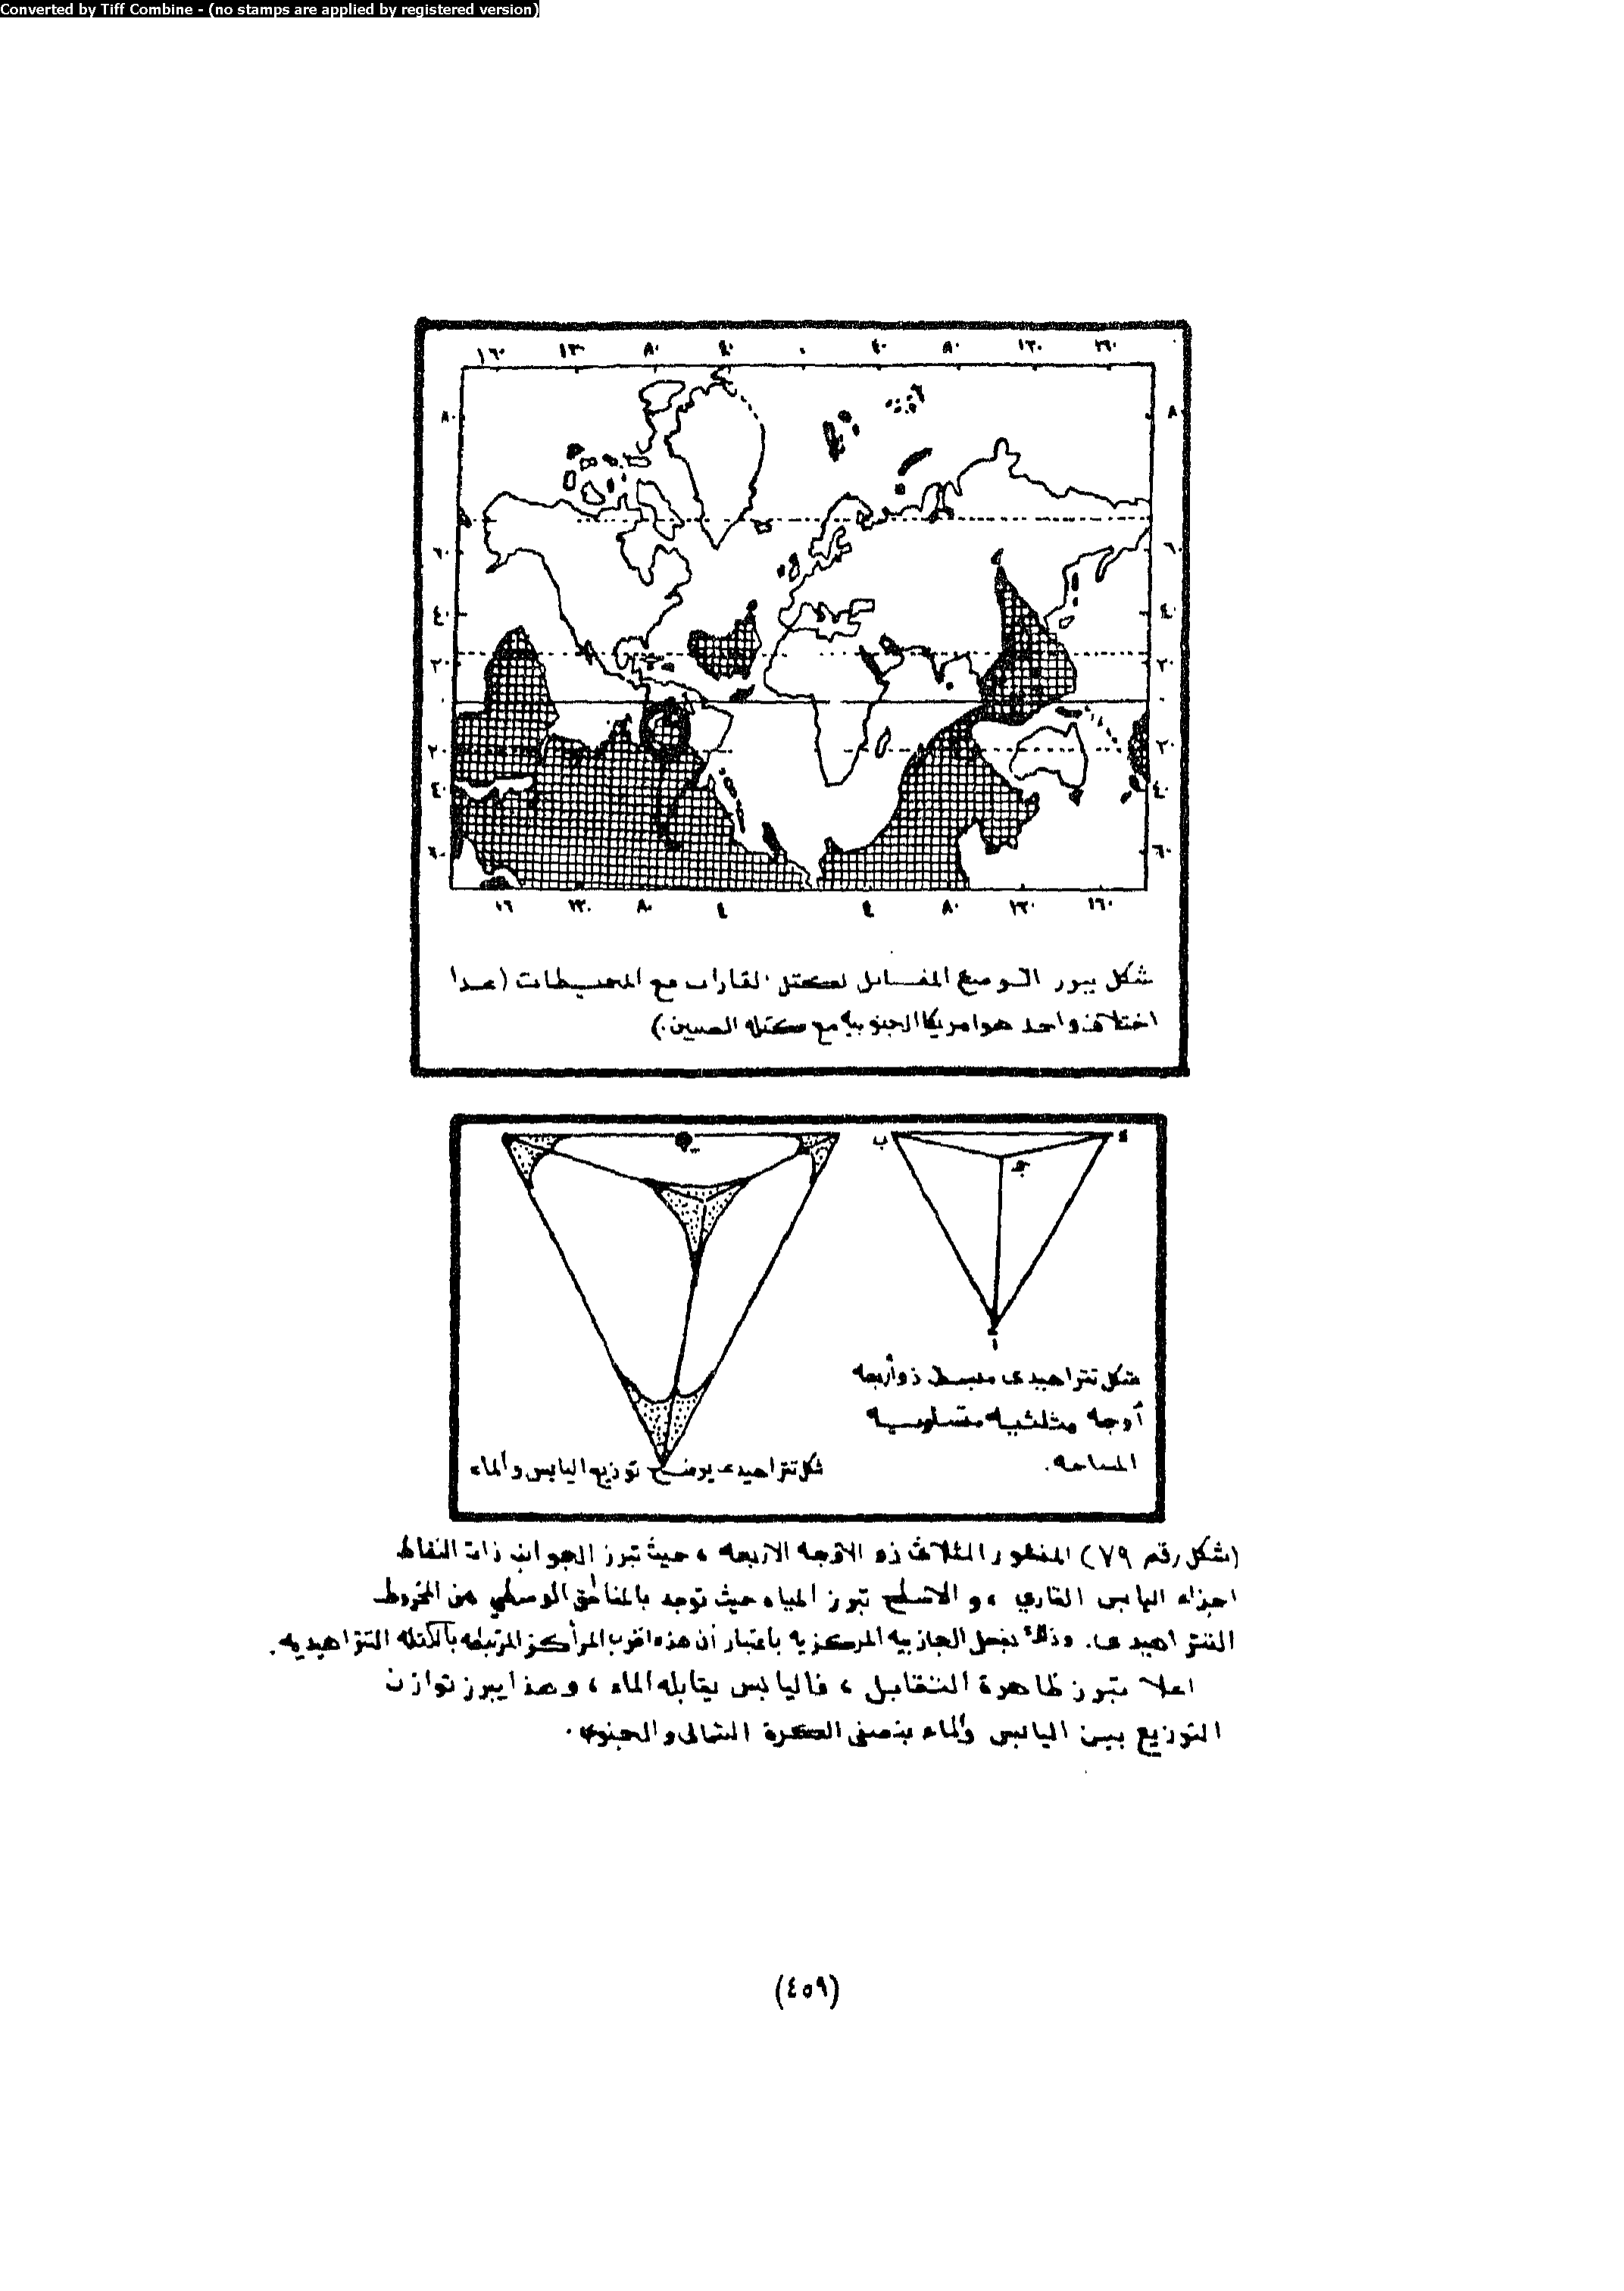 Converted by Tiff Combine - (no stamps are applied by registered version)
١٦٠ ١٢٠ ٨٠ ٤٠ ٠ ٤٠ ٨٠ ١٢٠ ١٦٠
٨٠ ٨٠
٦٠ ٦٠
٤٠ ٤٠
٢٠ ٢٠
٠ ٠
٢٠ ٢٠
٤٠ ٤٠
٦٠ ٦٠
١٦ ١٢٠ ٨٠ ٤ ٤ ٨٠ ١٢٠ ١٦٠
شكل يبرز التوزيع المقابل لكتل القارات مع المحيطات (عدا
اختلاف واحد هو امريكا الجنوبيه مع كتله الصين.)
ب
ج
أ
شكل تتراهيدى مبسط ذو أربعه
أوجه مثلثيه متساويه
المساحه.
شكل تتراهيدى يوضح توزيع اليابس والماء
(شكل رقم ٧٩) المنظور الثلاثى ذو الأوجه الاربعه ، حيث تبرز الجوانب ذات النقاط
اجزاء اليابس القاري ، و الاسطح تبرز المياه حيث توجد بالمناطق الوسطي من المخروط
التتراهيدى. وذلك بفعل الجاذبيه المركزيه باعتبار أن هذه اقرب المراكز المرتبطه بالكتله التتراهيديه.
اعلا تبرز ظاهرة التقابل ، فاليابس يقابله الماء ، وهذا يبرز توازن
التوزيع بين اليابس والماء بنصفى الكرة الشمالى والجنوبى.
(٤٥٩)